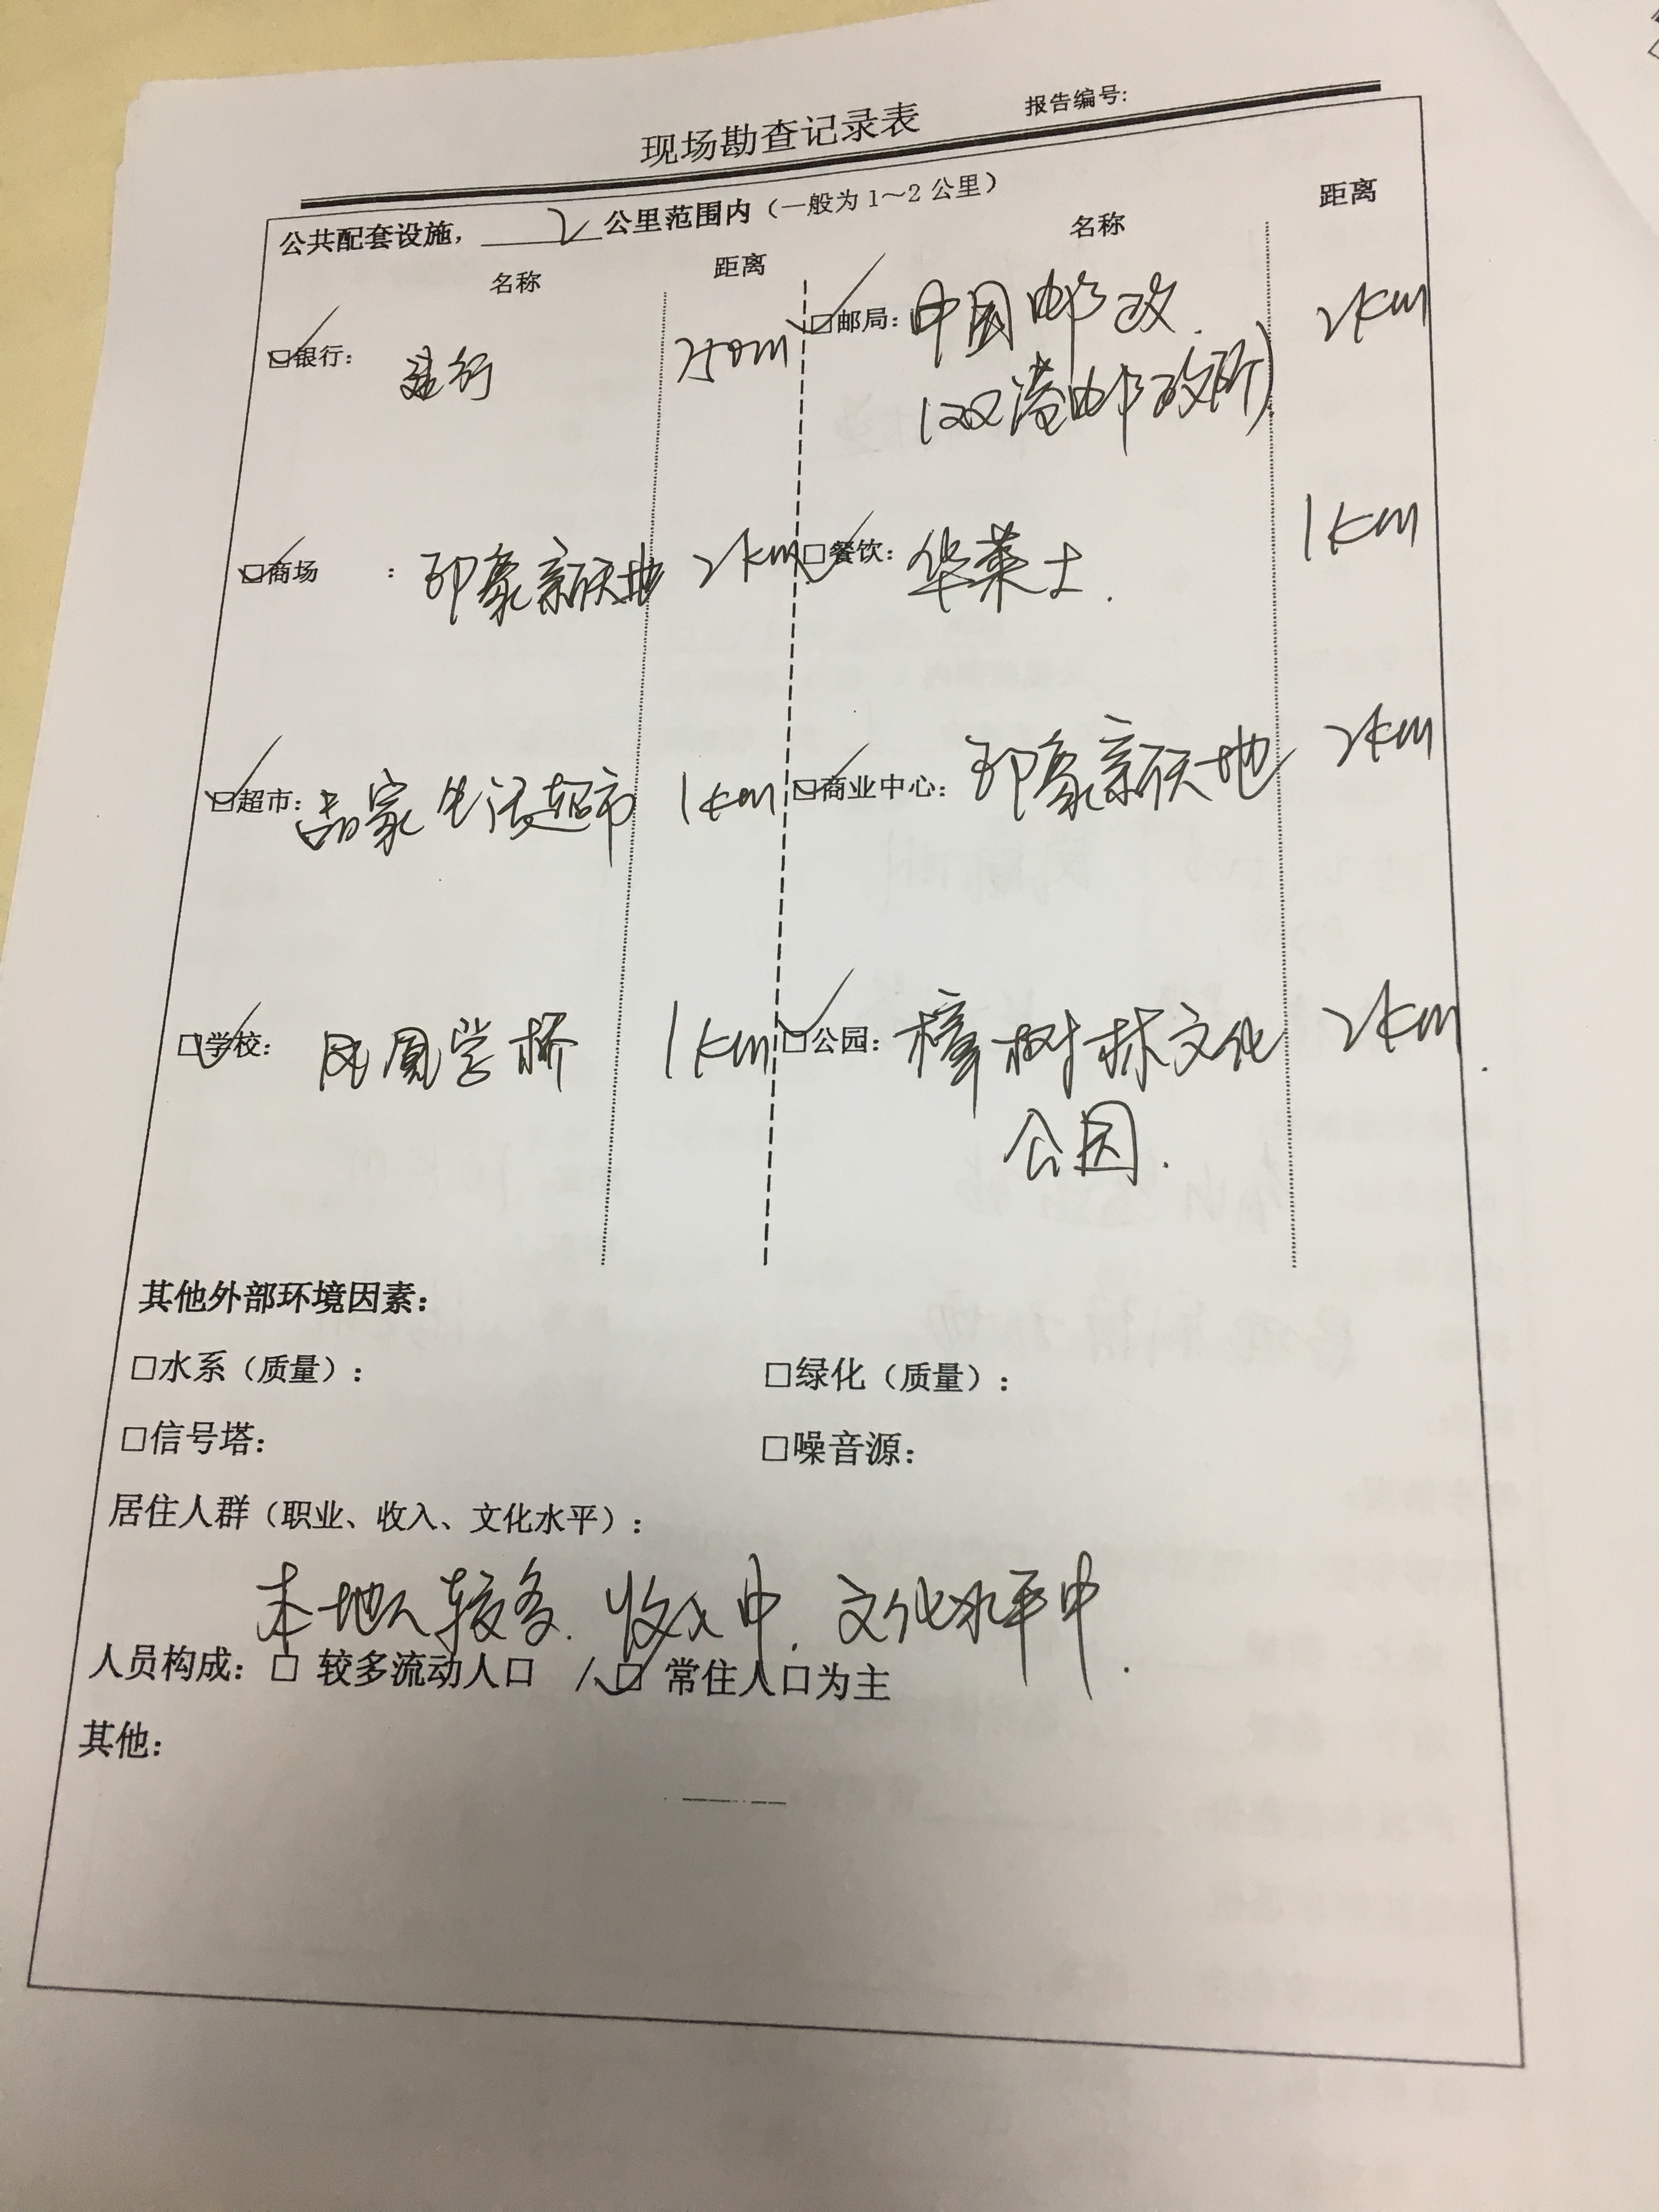 现场勘查记录表 报告编号:
公共配套设施，2公里范围内（一般为1～2公里）
名称 距离 名称 距离
☑银行： 建行 750m ☑邮局：中国邮政. 2km
(双港邮政所)
☑商场 ： 印象新天地 2km ☑餐饮：华莱士. 1km
☑超市： 家生活超市 1km ☑商业中心：印象新天地 2km
☑学校： 凤凰学桥 1km ☑公园：樟树林文化 2km
公园.
其他外部环境因素：
□水系（质量）： □绿化（质量）：
□信号塔： □噪音源：
居住人群（职业、收入、文化水平）：
本地人较多. 收入中. 文化水平中.
人员构成：□ 较多流动人口 / ☑ 常住人口为主
其他：